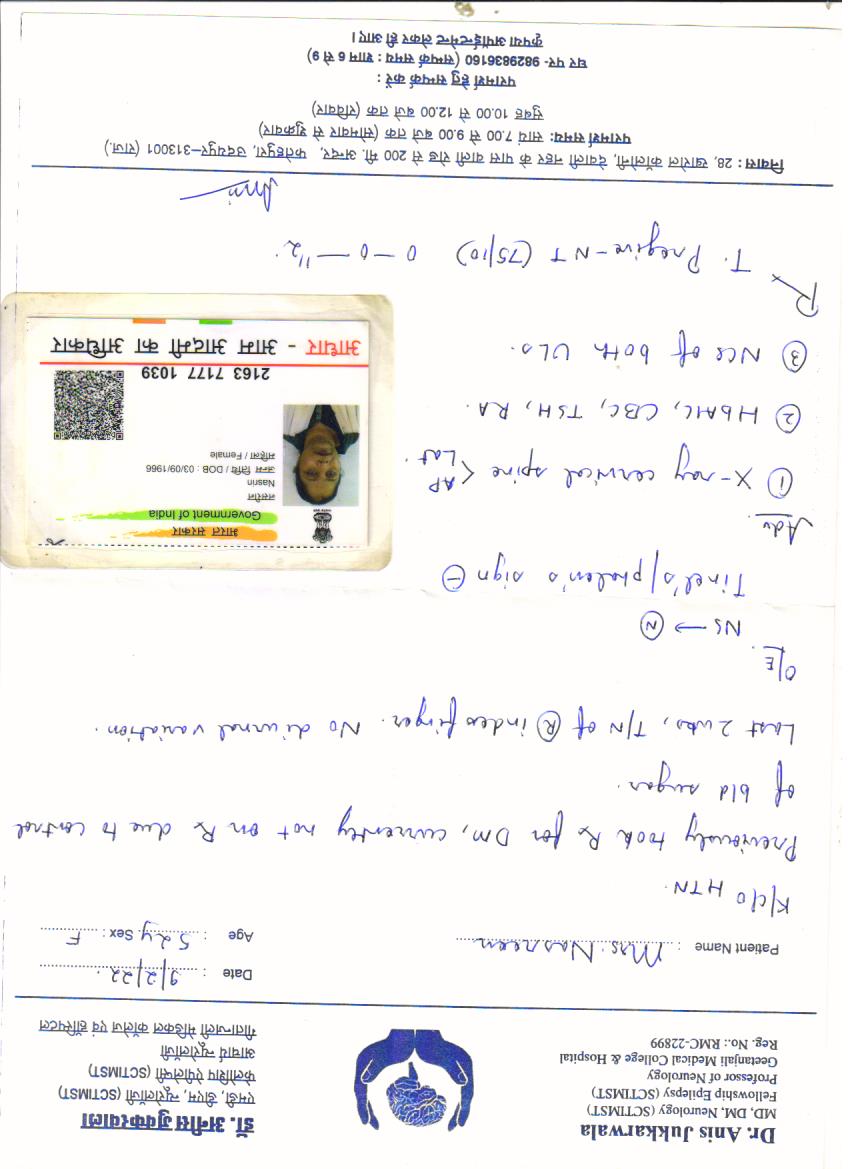 Dr. Anis Jukkarwala
MD, DM, Neurology (SCTIMST)
Fellowship Epilepsy (SCTIMST)
Professor of Neurology
Geetanjali Medical College & Hospital
Reg. No.: RMC-22899
डॉ. अनीस जुक्करवाला
एमडी, डीएम, न्यूरोलॉजी (SCTIMST)
फेलोशिप ऐपीलेप्सी (SCTIMST)
आचार्य न्यूरोलॉजी
गीतान्जली मेडिकल कॉलेज एवं हॉस्पिटल
Date : 9/2/22
Patient Name : Mrs. Nasreen
Age : 52y Sex : F
K/c/o HTN.
Previously took Rx for DM, currently not on Rx due to control
of bld sugar.
Last 2 wks, T/N of R index finger. No diurnal variation.
O/E
NS → N
Tinel's/phalen's sign −
Adv.
1 X-ray cervical spine < AP
Lat.
2 HbA1c, CBC, TSH, RA.
3 NCS of both ULs.
भारत सरकार
Government of India
नसरीन
Nasrin
जन्म तिथि / DOB : 03/09/1966
महिला / Female
2163 7177 1039
आधार - आम आदमी का अधिकार
Rx
T. Pregive-NT (75/10) 0 — 0 — 1/2.
निवास : 28, खारोल कॉलोनी, देवाली नहर के पास वाली रोड से 200 मी. अन्दर, फतेहपुरा, उदयपुर–313001 (राज.)
परामर्श समय: सायं 7.00 से 9.00 बजे तक (सोमवार से शुक्रवार)
सुबह 10.00 से 12.00 बजे तक (रविवार)
परामर्श हेतु सम्पर्क करें :
घर पर- 9829836160 (सम्पर्क समय : शाम 6 से 9)
कृपया अपॉइन्टमेन्ट लेकर ही आए।